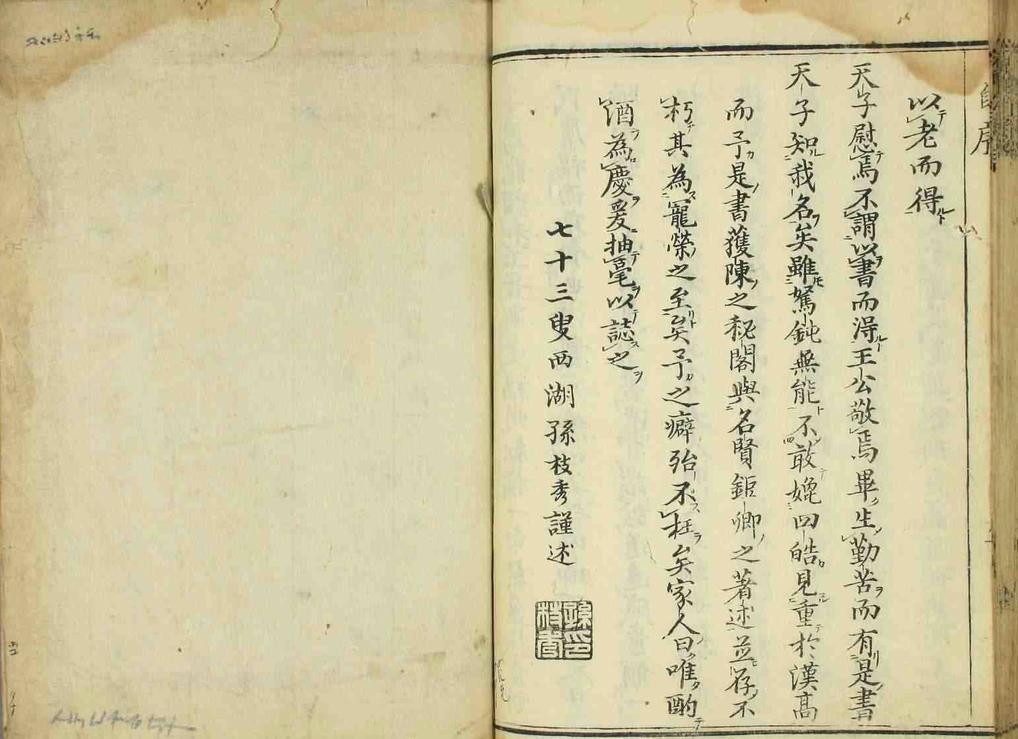 序
以老而得
天子慰焉不謂以書而得王公敬焉畢生勤苦而有是書
天子知我名矣雖駑鈍無能不敢媲四皓見重於漢高
而予是書獲陳之秘閣與名賢鉅卿之著述並存不
朽其為寵榮之至矣予之癖殆不枉矣家人曰唯酌
酒為慶爰抽毫以誌之
七十三叟西湖孫枝秀謹述
孫印枝秀